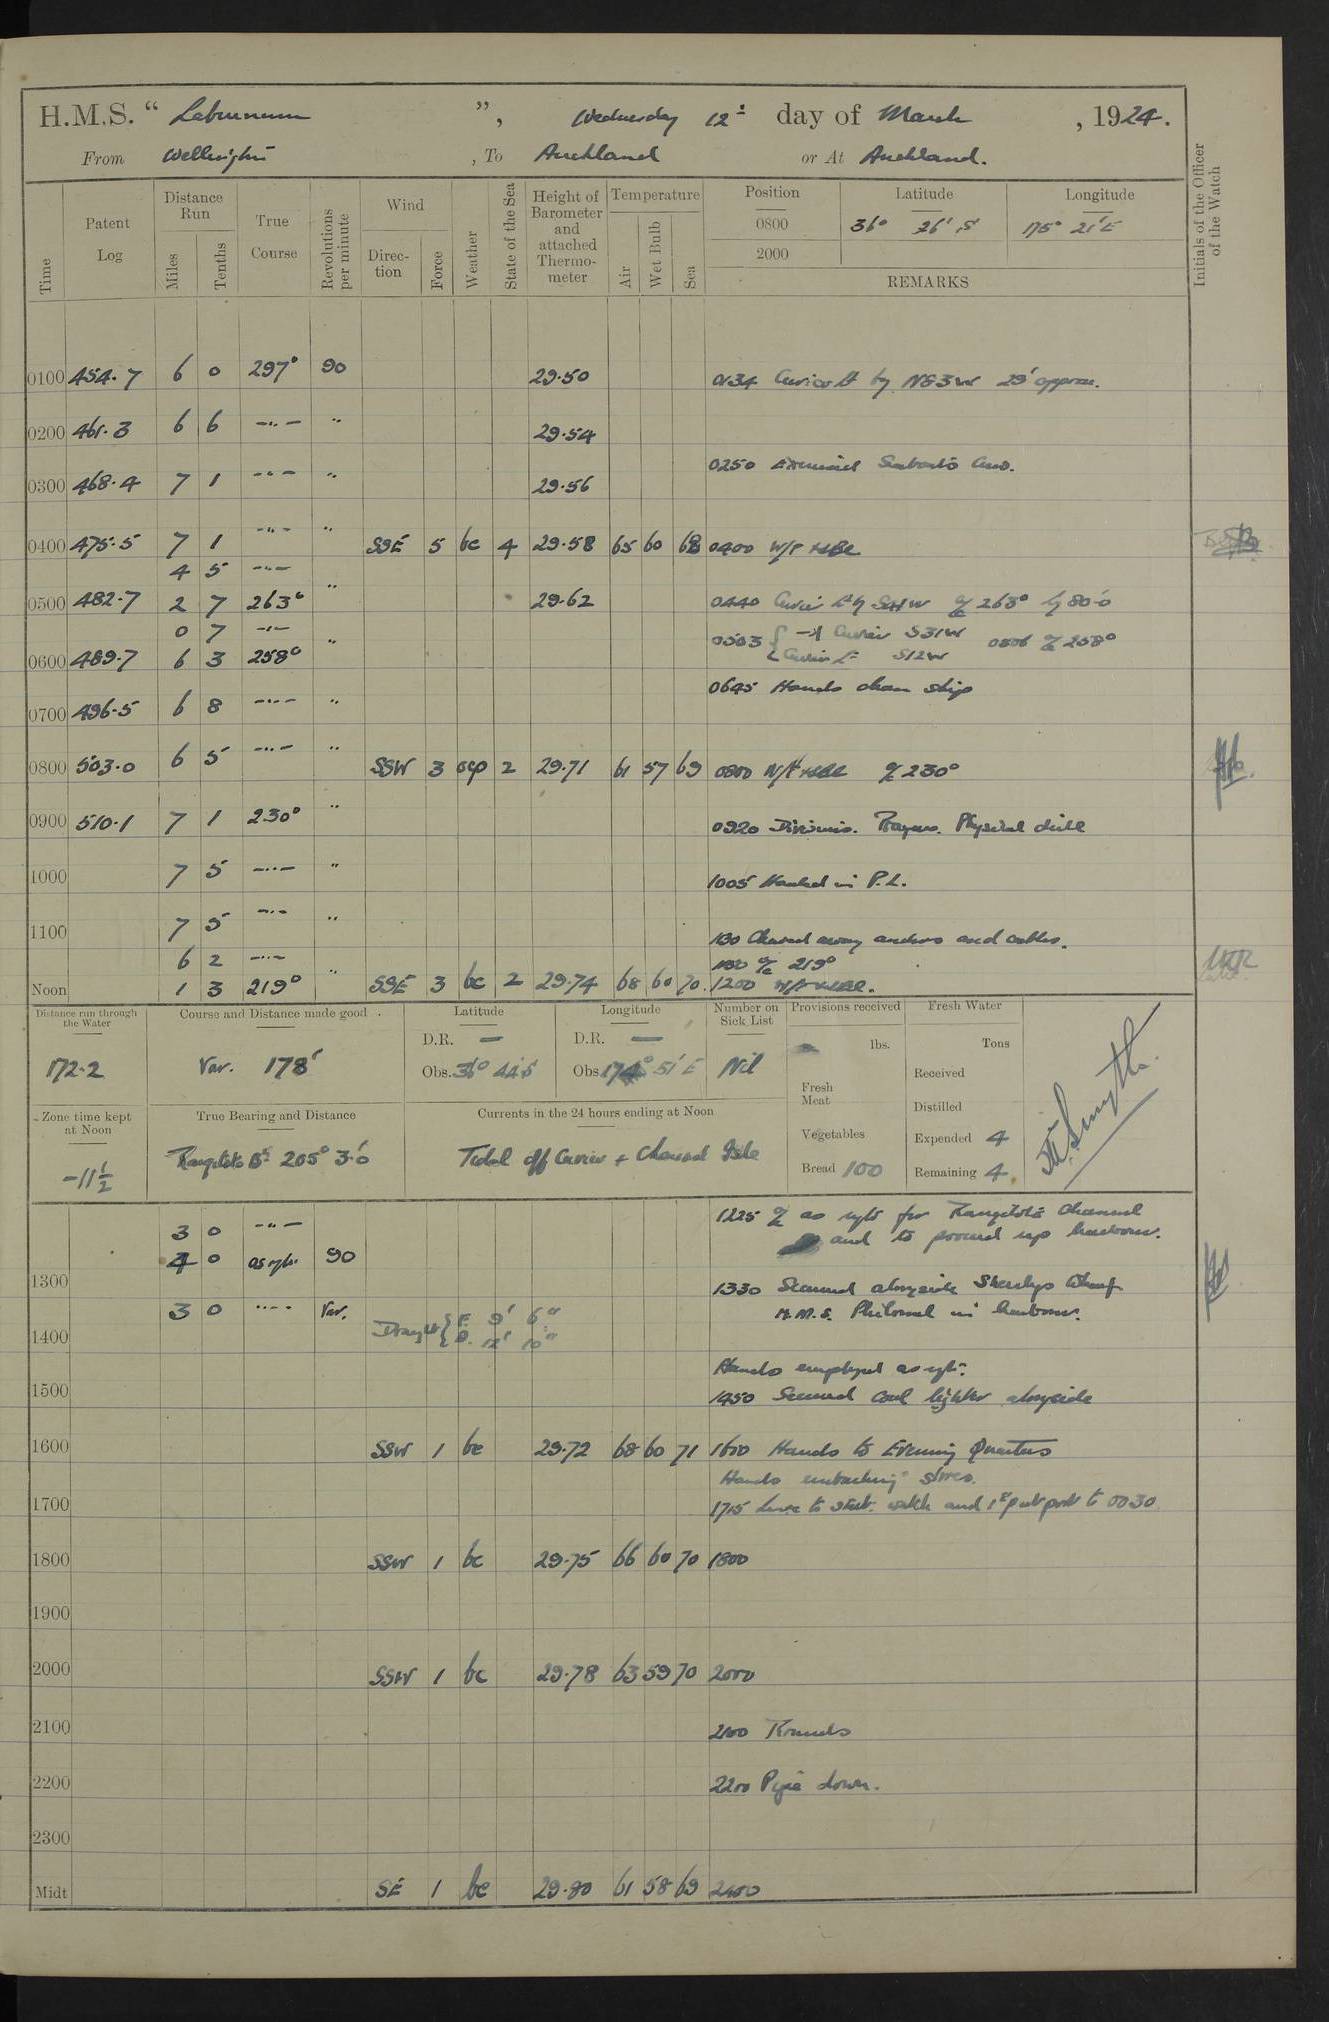 H.M.S. “ Laburnum ”, Wednesday 12th day of March , 1924.
From Wellington , To Auckland or At Auckland.
Time
Patent Log
Distance Run
Miles
Tenths
True Course
Revolutions per minute
Wind
Direction
Force
Weather
State of the Sea
Height of Barometer and attached Thermometer
Temperature
Air
Wet Bulb
Sea
Position Latitude Longitude
0800 36° 26' S 175° 21' E
2000
REMARKS
Initials of the Officer of the Watch
0100 454.7 6 0 297° 90 29.50 0134 Cuvier Lt by N83W 29' approx.
0200 461.3 6 6 -"- " 29.54
0250 Exercised Seaboats Crew.
0300 468.4 7 1 -"- " 29.56
0400 475.5 7 1 -"- " SSE 5 bc 4 29.58 65 60 68 0400
4 5 -"-
0500 482.7 2 7 263° " 29.62 0440 Cuvier Lt by S41W a/c 263° by 80.0
0 7 -"- 0503 { Cuvier S31W 0506 a/c 258°
0600 489.7 6 3 258° " Cuvier Lt S12W
0645 Hands clean ship
0700 496.5 6 8 -"- "
0800 503.0 6 5 -"- " SSW 3 ocp 2 29.71 61 57 69 0800 a/c 230°
0900 510.1 7 1 230° " 0920 Divisions. Prayers. Physical drill
1000 7 5 -"- " 1005 Handed in P.L.
1100 7 5 -"- " 1130 Cleared away anchors and cables.
6 2 -"- a/c 219°
Noon 1 3 219° " SSE 3 bc 2 29.74 68 60 70. 1200
Distance run through the Water
172.2
Course and Distance made good.
Var. 178'
Latitude
D.R. —
Obs. 36° 44' S
Longitude
D.R. —
Obs. 174° 51' E
Number on Sick List
Nil
Provisions received
lbs.
Fresh Meat
Vegetables
Bread 100
Fresh Water
Tons
Received
Distilled
Expended 4
Remaining 4.
Zone time kept at Noon
-11½
True Bearing and Distance
Rangitoto Bn 205° 3.0
Currents in the 24 hours ending at Noon
Tidal off Cuvier + Channel Isle
3 0 -"- 1225 a/c as reqte for Rangitoto Channel
4 0 as reqte. 90 and to proceed up harbour.
1300 1330 Secured alongside Sheerlegs Wharf
3 0 -"- Var. H.M.S. Philomel in harbour.
1400 Draught { F. 9' 6" A. 12' 10"
Hands employed as reqte.
1500 1450 Secured Coal lighter alongside
1600 SSW 1 bc 29.72 68 60 71 1600 Hands to Evening Quarters
Hands embarking stores.
1700 1715 Leave to starb. watch and 1st part port to 0030
1800 SSW 1 bc 29.75 66 60 70 1800
1900
2000 SSW 1 bc 29.78 63 59 70 2000
2100 2100 Rounds
2200 2200 Pipe down.
2300
Midt SE 1 bc 29.80 61 58 69 2400